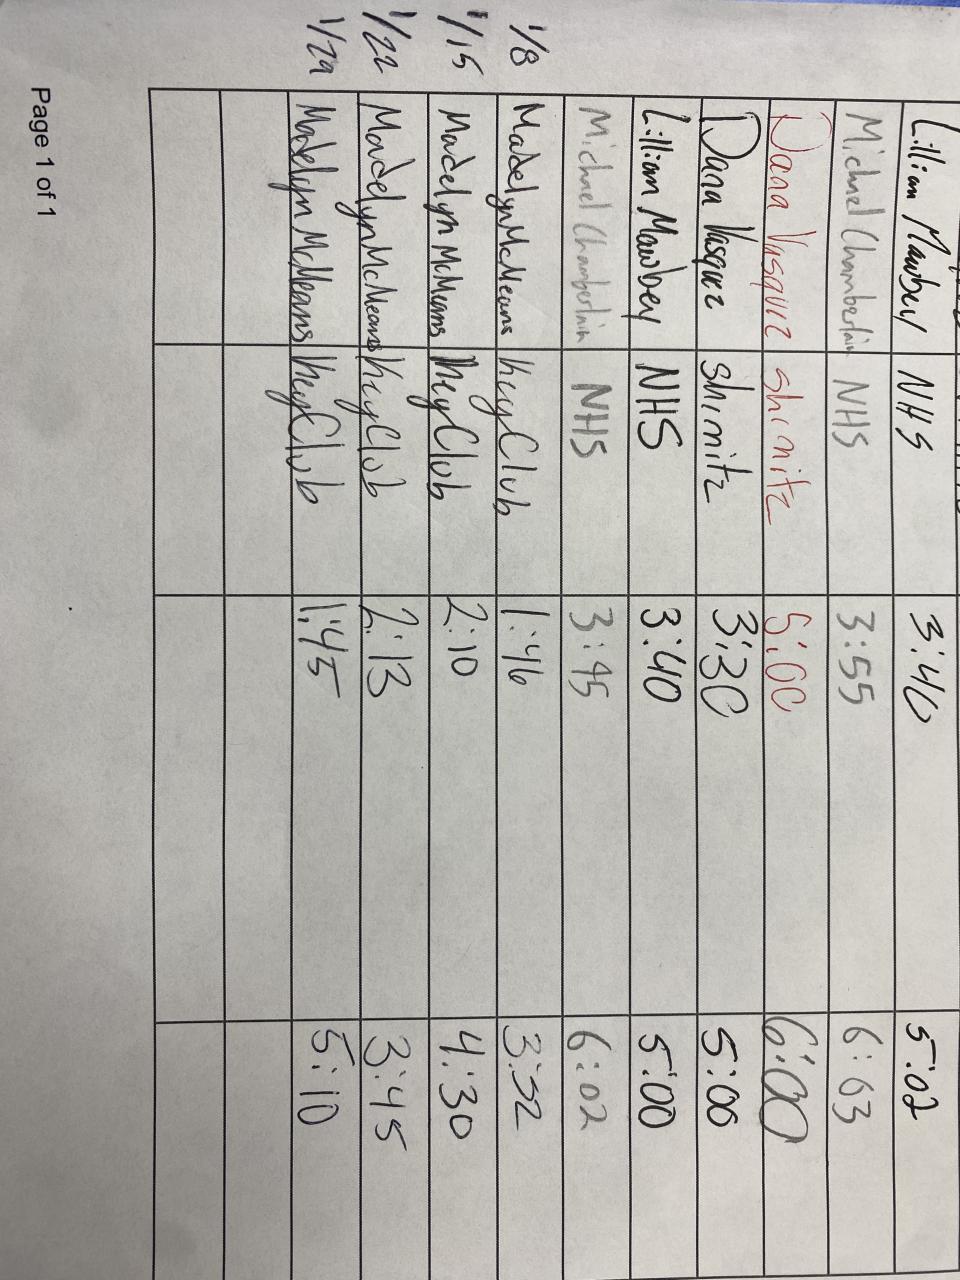 Lillian Mawbey NHS 3:40 5:02
Michael Chamberlain NHS 3:55 6:03
Dana Vasquez shimitz 5:00 6:00
Dana Vasquez shimitz 3:30 5:00
Lillian Mawbey NHS 3:40 5:00
Michael Chamberlain NHS 3:45 6:02
1/8 Madelyn McMeans Key Club 1:46 3:32
1/15 Madelyn McMeans Key Club 2:10 4:30
1/22 Madelyn McMeans Key Club 2:13 3:45
1/29 Madelyn McMeans Key Club 1:45 5:10
Page 1 of 1